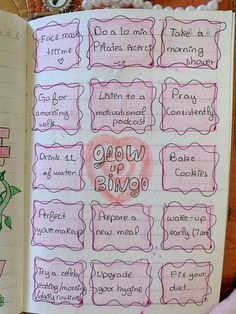 Face mask
time
Do a 10 min
Pilates exerci
-ce
Take a
morning
shower
Go for a
morning
walk
Listen to a
motivational
podcast
Pray
Consistently
Drink 1L
of water
GLOW
UP
BINGO
Bake
Cookies
Perfect
your makeup
Prepare a
new meal
wake-up
early (7am)
Try a celeb
eating/morning
/daily routine
Upgrade
your hygine
Fix your
diet